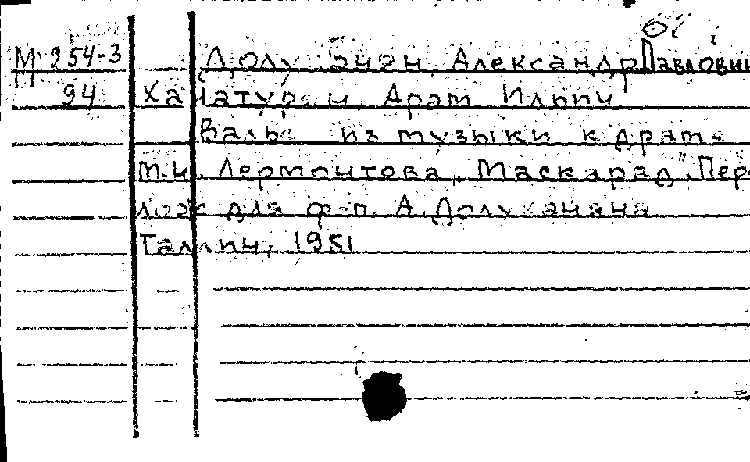 М 254-3 Долуханян, Александр Павлович
94 Хачатурян, Арам Ильич
Вальс из музыки к драме
М.Ю. Лермонтова "Маскарад". Пере
лож. для ф-п. А. Долуханяна
Таллин, 1951